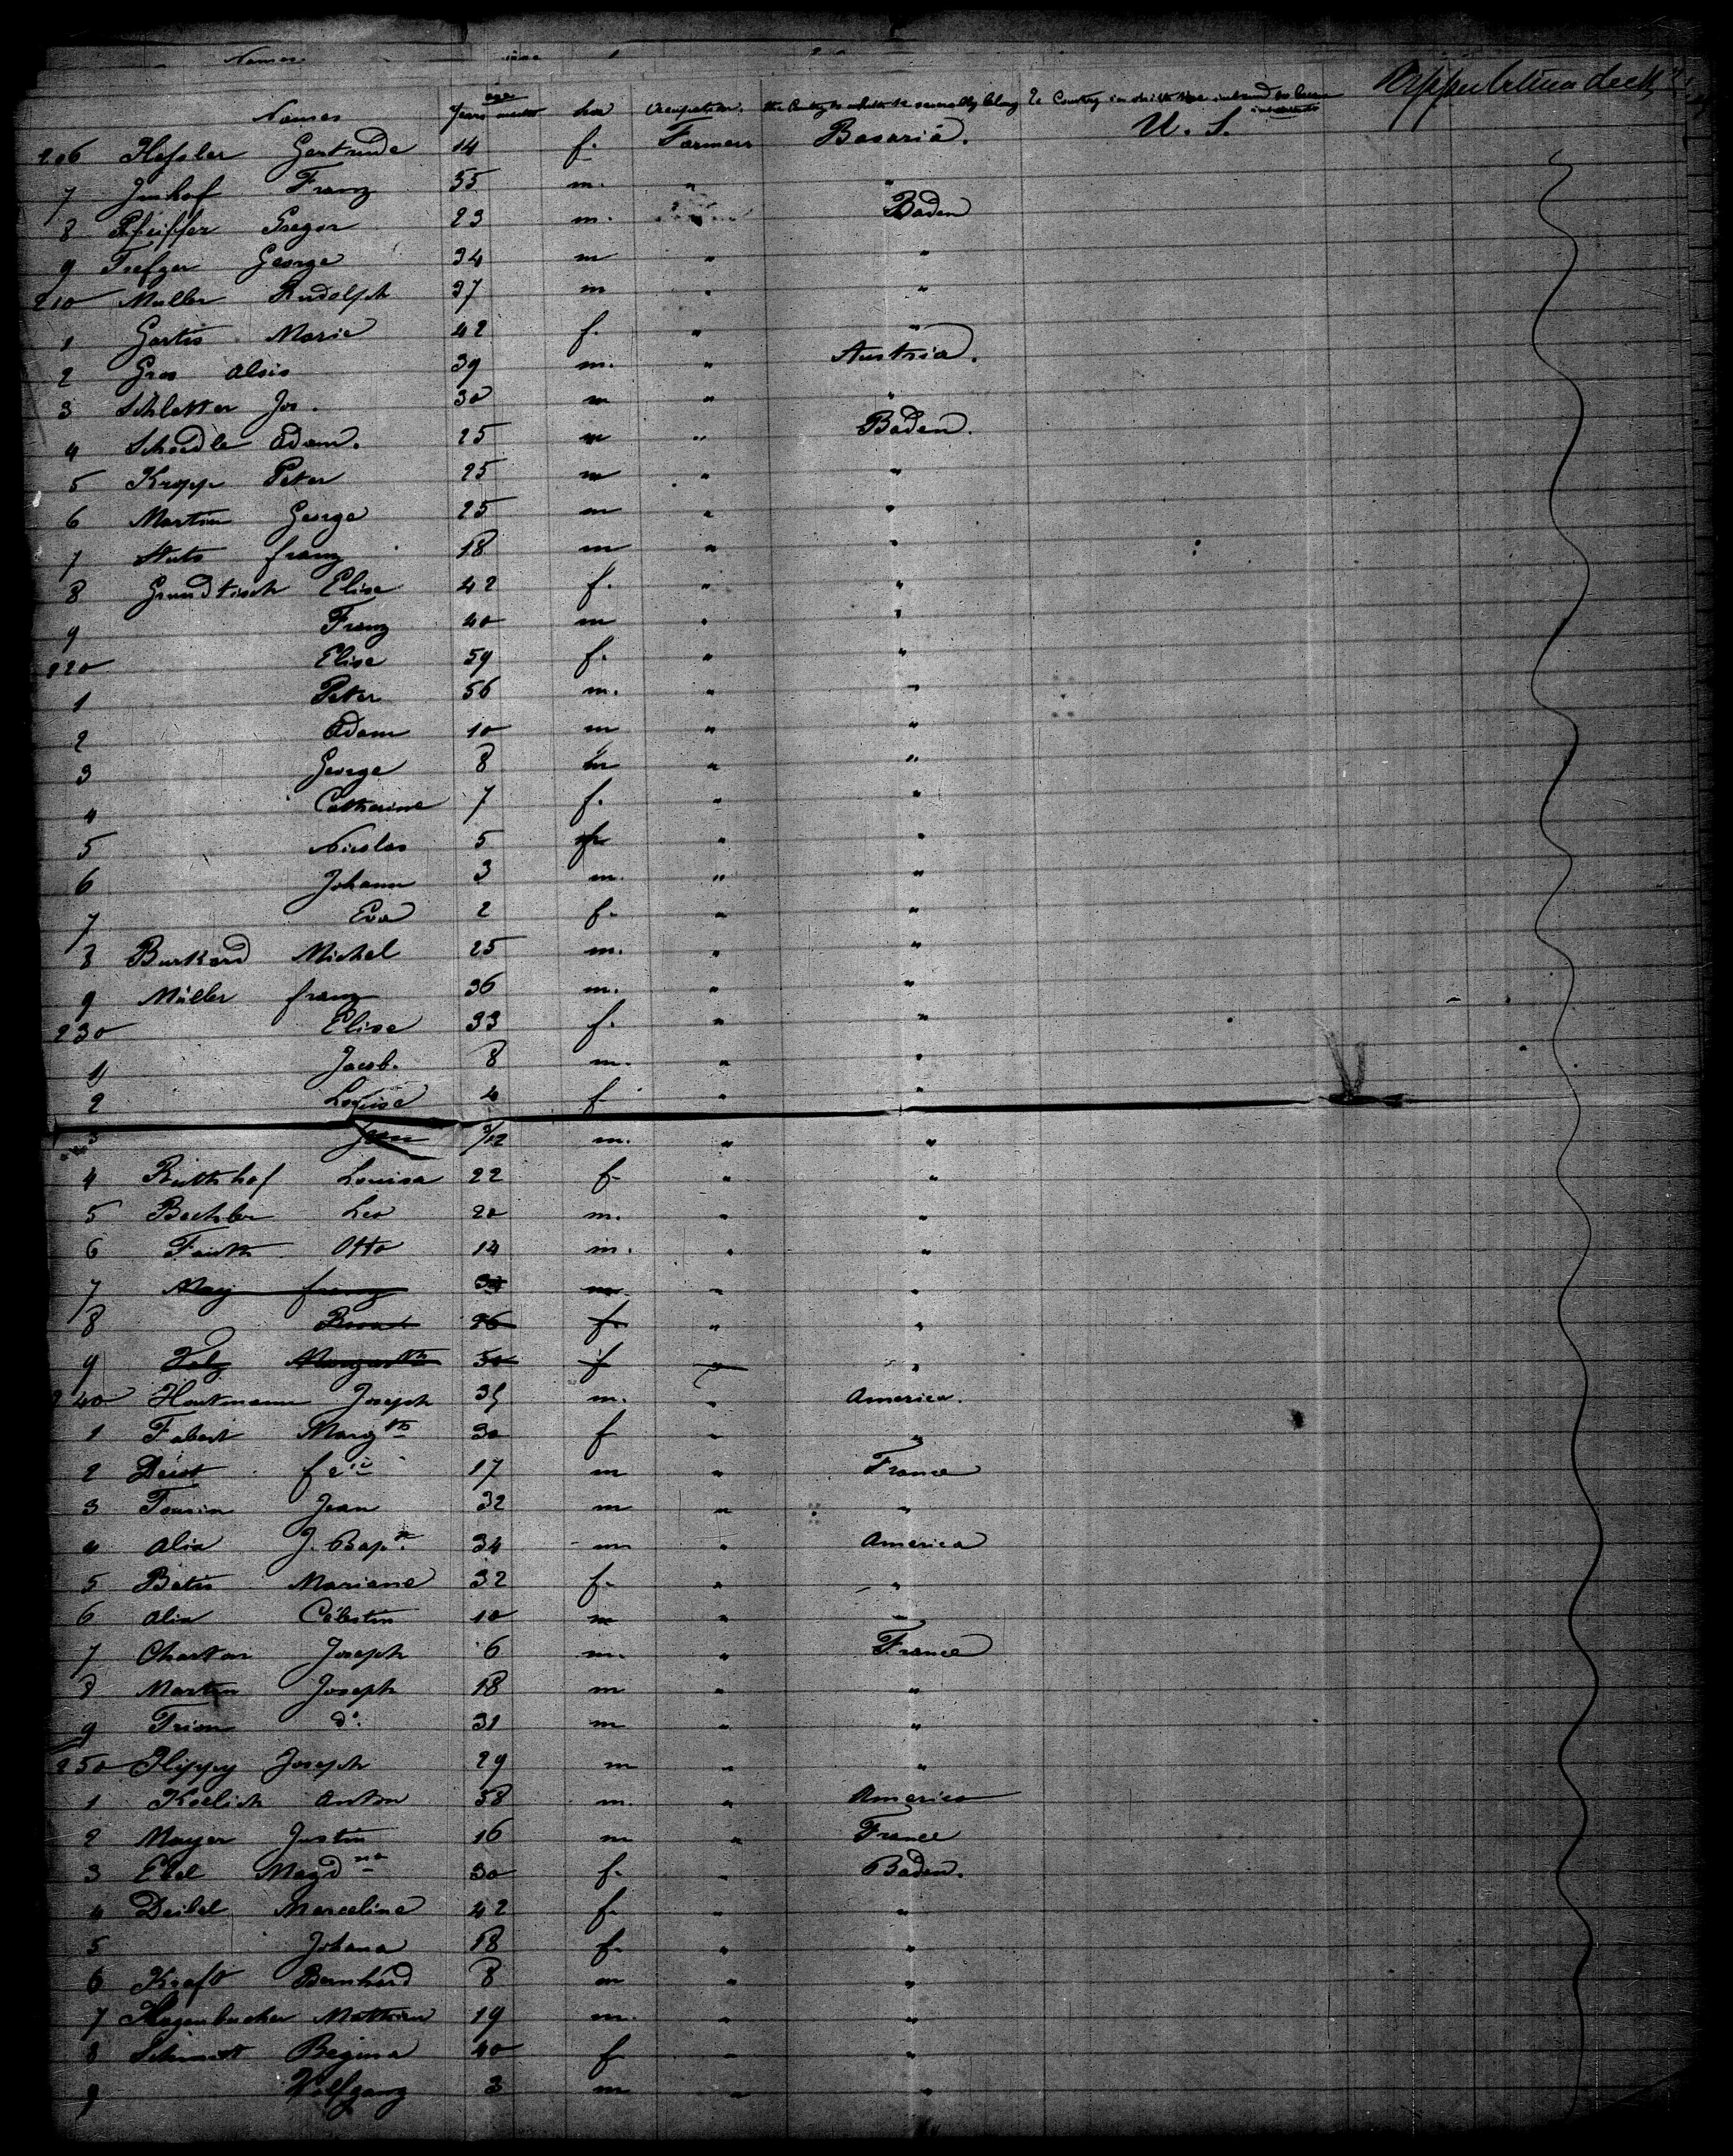 Names
Names age Years months Sex Occupation. the Country to which they severally belong The Country in which they intend to become inhabitants Upper between deck
206 Hessler Gertrude 14 f. Farmers Bavaria. U. S.
7 Imhof Franz 55 m. " "
8 Pfeiffer Gregor 23 m. Baden
9 Trefzger George 34 m " "
210 Muller Rudolph 37 m " "
1 Gartis Marie 42 f. " "
2 Gros Alois 39 m. " Austria.
3 Schlatter Jos. 30 m " "
4 Schoedle Adam. 25 m " Baden.
5 Kropp Peter 25 m " "
6 Martin George 25 m " "
7 franz 18 m " "
8 Grundtisch Elise 42 f. " "
9 Franz 40 m " "
220 Elise 59 f. " "
1 Peter 56 m. " "
2 Adam 10 m " "
3 George 8 m " "
4 Catherine 7 f. " "
5 Nicolas 5 " "
6 Johann 3 m. " "
7 Eva 2 f. " "
8 Burkard Michel 25 m. " "
9 Müller franz 36 m. " "
230 Elise 33 f. " "
1 Jacob. 8 m. " "
2 Louise 4 f " "
3 9/12 m. " "
4 Butthof Louisa 22 f. " "
5 Bechler Leo 20 m. " "
6 Fauth Otto 14 m. " "
7 May franz 34 m. " "
8 26 f. " "
9 Margareth 50 f " "
240 Hautmann Joseph 35 m. " America.
1 Fabert Margth 30 f " "
2 17 m " France
3 Jean 32 m " "
4 Alia J. Bapte 34 m " America
5 Betis Mariane 32 f. " "
6 Alia Célestin 10 m " "
7 Charton Joseph 6 m. " France
8 Martin Joseph 18 m " "
9 do. 31 m " "
250 Hippy Joseph 29 m " "
1 Koelich Anton 38 m. " America
2 Mayer Justin 16 m " France
3 Ebel Magdna 30 f. " Baden.
4 Deibel Marceline 42 f. " "
5 Johana 18 f. " "
6 Kraft Bernhard 8 m " "
7 Hagenbucher Mathieu 19 m. " "
8 Schmidt Regina 40 f " "
9 Wolfgang 3 m " "